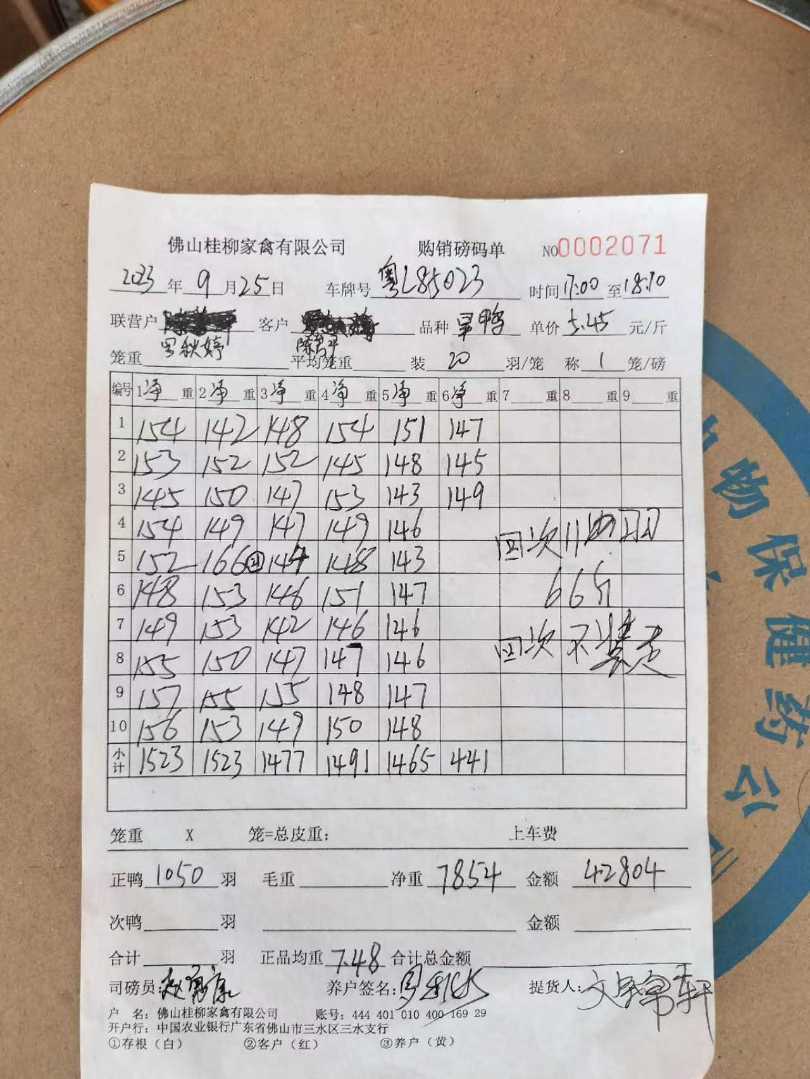 佛山桂柳家禽有限公司 购销磅码单 NO0002071
2023年9月25日 车牌号粤L85023 时间17:00至18:10
联营户 客户 品种旱鸭 单价5.45元/斤
罗秋婷
笼重 平均笼重 装20羽/笼 称1笼/磅
编号 1净重 2净重 3净重 4净重 5净重 6净重 7重 8重 9重
1 154 142 148 154 151 147
2 153 152 152 145 148 145
3 145 150 147 153 143 149
4 154 149 147 149 146
回次11
5 152 166 144 148 143
6 148 153 146 151 147
66斤
7 149 153 142 146 146
回次不装走
8 155 150 147 147 146
9 157 155 155 148 147
10 156 153 149 150 148
小计 1523 1523 1477 1491 1465 441
笼重 X 笼=总皮重: 上车费
正鸭1050羽 毛重 净重7854 金额42804
次鸭 羽 金额
合计 羽 正品均重7.48 合计总金额
司磅员: 养户签名: 提货人:
户 名: 佛山桂柳家禽有限公司 账号: 444 401 010 400 169 29
开户行: 中国农业银行广东省佛山市三水区三水支行
①存根(白) ②客户(红) ③养户(黄)
物保健药公